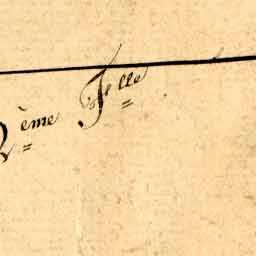 2ème Flle